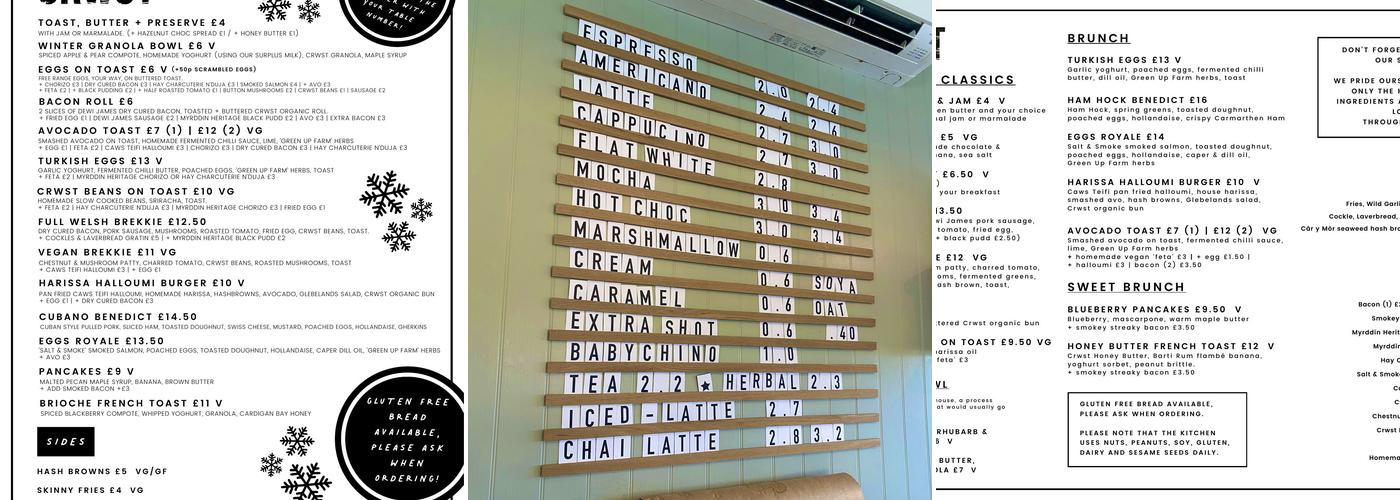 YOUR TABLE
NUMBER!
TOAST, BUTTER + PRESERVE £4
WITH JAM OR MARMALADE. (+ HAZELNUT CHOC SPREAD £1 / + HONEY BUTTER £1)
WINTER GRANOLA BOWL £6 V
SPICED APPLE & PEAR COMPOTE, HOMEMADE YOGHURT (USING OUR SURPLUS MILK), CRWST GRANOLA, MAPLE SYRUP
EGGS ON TOAST £6 V (+50p SCRAMBLED EGGS)
FREE RANGE EGGS, YOUR WAY, ON BUTTERED TOAST.
+ CHORIZO £3 | DRY CURED BACON £3 | HAY CHARCUTERIE N'DUJA £3 | SMOKED SALMON £4 | + AVO £3
+ FETA £2 | + BLACK PUDDING £2 | + HALF ROASTED TOMATO £1 | BUTTON MUSHROOMS £2 | CRWST BEANS £1 | SAUSAGE £2
BACON ROLL £6
2 SLICES OF DEWI JAMES DRY CURED BACON, TOASTED + BUTTERED CRWST ORGANIC ROLL.
+ FRIED EGG £1 | DEWI JAMES SAUSAGE £2 | MYRDDIN HERITAGE BLACK PUDD £2 | AVO £3 | EXTRA BACON £3
AVOCADO TOAST £7 (1) | £12 (2) VG
SMASHED AVOCADO ON TOAST, HOMEMADE FERMENTED CHILLI SAUCE, LIME, 'GREEN UP FARM' HERBS
+ EGG £1 | FETA £2 | CAWS TEIFI HALLOUMI £3 | CHORIZO £3 | DRY CURED BACON £3 | HAY CHARCUTERIE N'DUJA £3
TURKISH EGGS £13 V
GARLIC YOGHURT, FERMENTED CHILLI BUTTER, POACHED EGGS, 'GREEN UP FARM' HERBS, TOAST
+ FETA £2 | MYRDDIN HERITAGE CHORIZO OR HAY CHARCUTERIE N'DUJA £3
CRWST BEANS ON TOAST £10 VG
HOMEMADE SLOW COOKED BEANS, SRIRACHA, TOAST.
+ FETA £2 | + HAY CHARCUTERIE N'DUJA £3 | MYRDDIN HERITAGE CHORIZO £3 | FRIED EGG £1
FULL WELSH BREKKIE £12.50
DRY CURED BACON, PORK SAUSAGE, MUSHROOMS, ROASTED TOMATO, FRIED EGG, CRWST BEANS, TOAST.
+ COCKLES & LAVERBREAD GRATIN £5 | + MYRDDIN HERITAGE BLACK PUDD £2
VEGAN BREKKIE £11 VG
CHESTNUT & MUSHROOM PATTY, CHARRED TOMATO, CRWST BEANS, ROASTED MUSHROOMS, TOAST
+ CAWS TEIFI HALLOUMI £3 | + EGG £1
HARISSA HALLOUMI BURGER £10 V
PAN FRIED CAWS TEIFI HALLOUMI, HOMEMADE HARISSA, HASHBROWNS, AVOCADO, GLEBELANDS SALAD, CRWST ORGANIC BUN
+ EGG £1 | + DRY CURED BACON £3
CUBANO BENEDICT £14.50
CUBAN STYLE PULLED PORK, SLICED HAM, TOASTED DOUGHNUT, SWISS CHEESE, MUSTARD, POACHED EGGS, HOLLANDAISE, GHERKINS
EGGS ROYALE £13.50
'SALT & SMOKE' SMOKED SALMON, POACHED EGGS, TOASTED DOUGHNUT, HOLLANDAISE, CAPER DILL OIL, 'GREEN UP FARM' HERBS
+ AVO £3
PANCAKES £9 V
MALTED PECAN MAPLE SYRUP, BANANA, BROWN BUTTER
+ ADD SMOKED BACON +£3
BRIOCHE FRENCH TOAST £11 V
SPICED BLACKBERRY COMPOTE, WHIPPED YOGHURT, GRANOLA, CARDIGAN BAY HONEY
GLUTEN FREE
BREAD
AVAILABLE,
PLEASE ASK
WHEN
ORDERING!
SIDES
HASH BROWNS £5 VG/GF
SKINNY FRIES £4 VG
ESPRESSO
AMERICANO 2.0 2.4
LATTE 2.4 2.6
CAPPUCINO 2.7 3.0
FLAT WHITE 2.7 3.0
MOCHA 2.8
HOT CHOC 3.0 3.4
MARSHMALLOW 3.0 3.4
CREAM 0.6
CARAMEL 0.6 SOYA
EXTRA SHOT 0.6 OAT
BABYCHINO 0.6 .40
1.0
TEA 2.2 ★ HERBAL 2.3
ICED-LATTE 2.7
CHAI LATTE 2.8 3.2
T
CLASSICS
& JAM £4 V
en butter and your choice
al jam or marmalade
£5 VG
ade chocolate &
nana, sea salt
£6.50 V
your breakfast
13.50
wi James pork sausage,
tomato, fried egg,
+ black pudd £2.50)
E £12 VG
m patty, charred tomato,
oms, fermented greens,
ash brown, toast,
ttered Crwst organic bun
ON TOAST £9.50 VG
arissa oil
'feta' £3
WL
house, a process
at would usually go
RHUBARB &
V
BUTTER,
OLA £7 V
BRUNCH
TURKISH EGGS £13 V
Garlic yoghurt, poached eggs, fermented chilli
butter, dill oil, Green Up Farm herbs, toast
HAM HOCK BENEDICT £16
Ham Hock, spring greens, toasted doughnut,
poached eggs, hollandaise, crispy Carmarthen Ham
EGGS ROYALE £14
Salt & Smoke smoked salmon, toasted doughnut,
poached eggs, hollandaise, caper & dill oil,
Green Up Farm herbs
HARISSA HALLOUMI BURGER £10 V
Caws Teifi pan fried halloumi, house harissa,
smashed avo, hash browns, Glebelands salad,
Crwst organic bun
AVOCADO TOAST £7 (1) | £12 (2) VG
Smashed avocado on toast, fermented chilli sauce,
lime, Green Up Farm herbs
+ homemade vegan 'feta' £3 | + egg £1.50 |
+ halloumi £3 | bacon (2) £3.50
SWEET BRUNCH
BLUEBERRY PANCAKES £9.50 V
Blueberry, mascarpone, warm maple butter
+ smokey streaky bacon £3.50
HONEY BUTTER FRENCH TOAST £12 V
Crwst Honey Butter, Barti Rum flambé banana,
yoghurt sorbet, peanut brittle.
+ smokey streaky bacon £3.50
GLUTEN FREE BREAD AVAILABLE,
PLEASE ASK WHEN ORDERING.
PLEASE NOTE THAT THE KITCHEN
USES NUTS, PEANUTS, SOY, GLUTEN,
DAIRY AND SESAME SEEDS DAILY.
DON'T FORGE
OUR S
WE PRIDE OURS
ONLY THE H
INGREDIENTS A
LO
THROUG
Fries, Wild Garli
Cockle, Laverbread,
Câr y Môr seaweed hash bro
Bacon (1) £
Smokey
Myrddin Herit
Myrddin
Hay C
Salt & Smok
C
Chestnu
Crwst
Homema